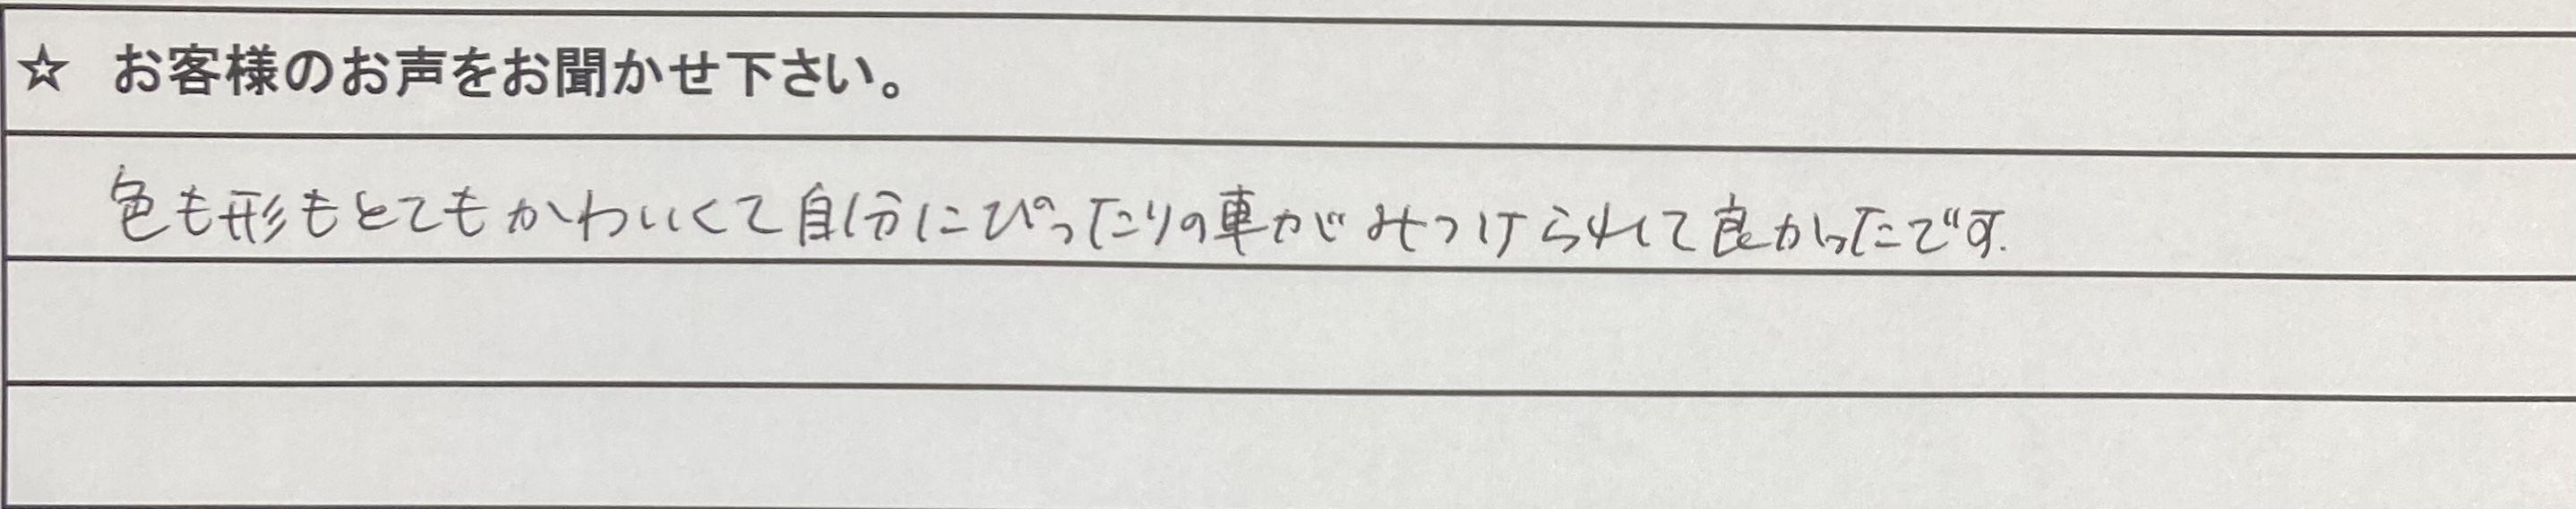 ☆ お客様のお声をお聞かせ下さい。
色も形もとてもかわいくて自分にぴったりの車がみつけられて良かったです.